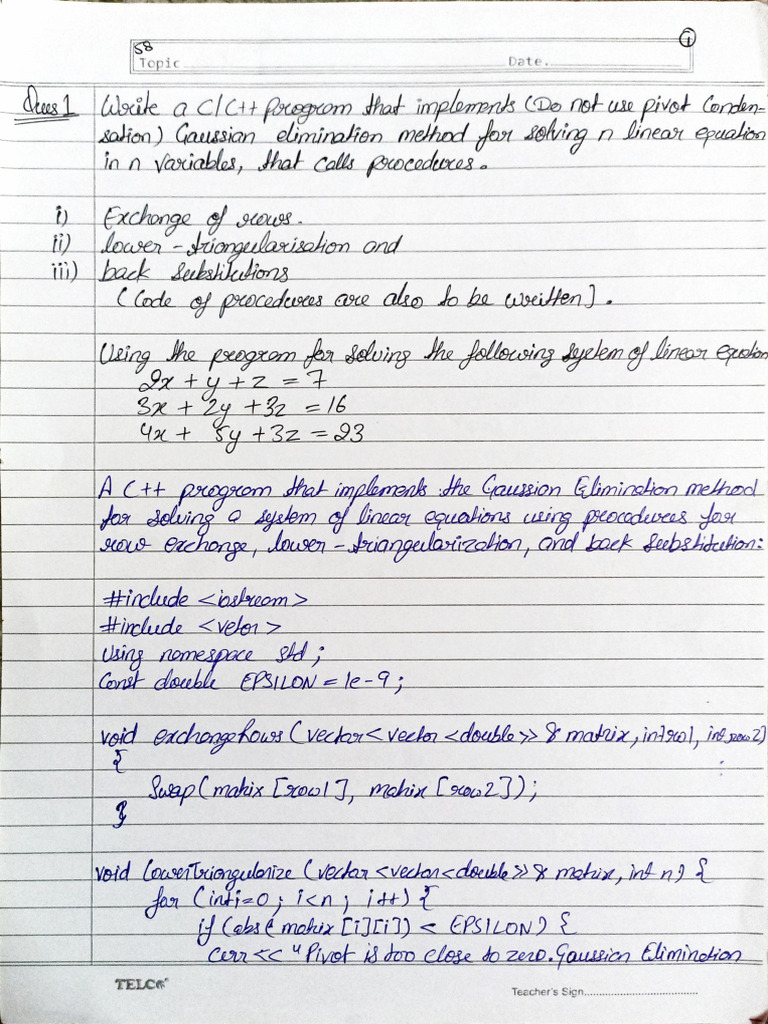 58
1
Topic
Date.
Ques 1 Write a C/C++ program that implements (Do not use pivot Conden-
sation) Gaussian elimination method for solving n linear equation
in n variables, that calls procedures.
i) Exchange of rows.
ii) lower-triangularisation and
iii) back substitutions
(Code of procedures are also to be written].
Using the program for solving the following system of linear equation
2x + y + z = 7
3x + 2y + 3z = 16
4x + 5y + 3z = 23
A C++ program that implements the Gaussian Elimination method
for solving a system of linear equations using procedures for
row exchange, lower-triangularization, and back Substitution:
#include <iostream>
#include <vetor>
Using namespace std;
Const double EPSILON = 1e-9;
void exchangeRows (vectar<vector<double>> & matrix, int row1, int row2)
{
Swap(matrix [row1], matrix [row2]);
}
void lowerTriangularize (vectar<vectar<double>> & matrix, int n) {
for (int i=0; i<n; i++) {
if (abs( matrix [i][i]) < EPSILON) {
Cerr << "Pivot is too close to zero. Gaussian Elimination
TELCO
Teacher's Sign